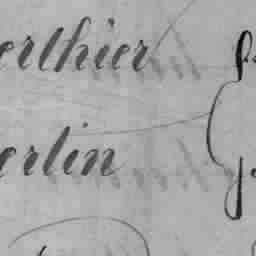 erthier
erlin